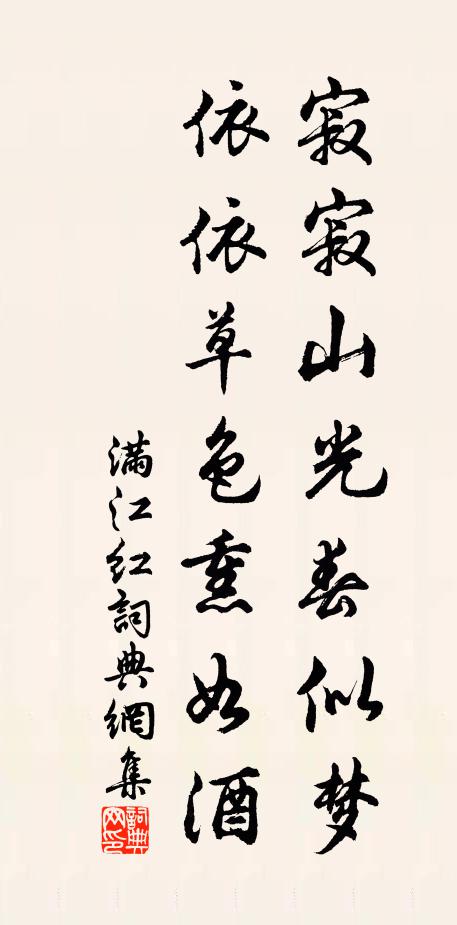 寂寂山光春似梦
依依草色熏如酒
满江红詞典網集
詞典
网印